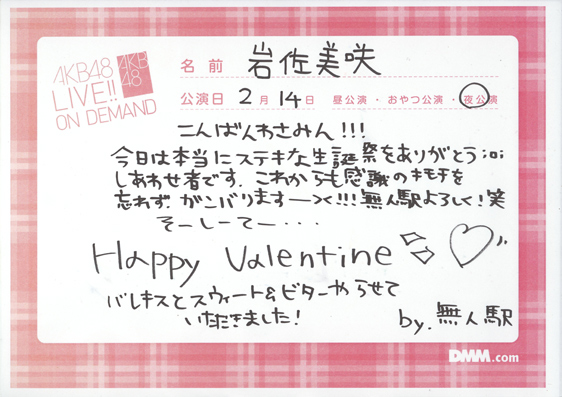 AKB48
LIVE!!
ON DEMAND
AKB
48
名前 岩佐美咲
公演日 2月14日 昼公演・おやつ公演・夜公演
こんばんわさみん!!!
今日は本当にステキな生誕祭をありがとう;o;
しあわせ者です。これからも感謝のキモチを
忘れず がンバりますーつく!!!無人駅よろしく!笑
そーしーてー・・・
Happy Valentine
バレキスとスウィート&ビターやらせて
いただきました!
by.無人駅
DMM.com